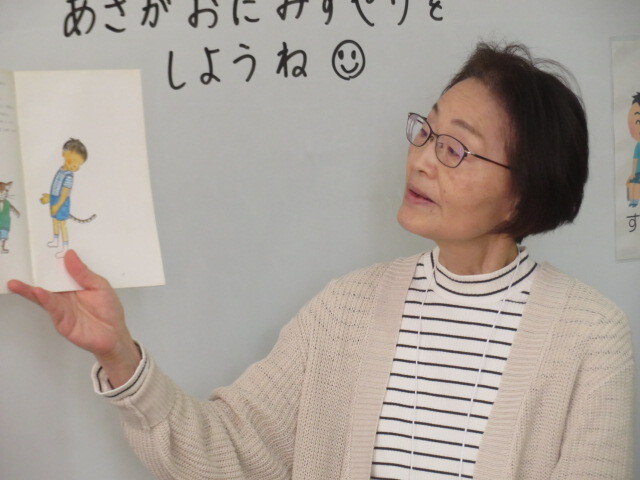 あさがおにみずやりを
しようね
す